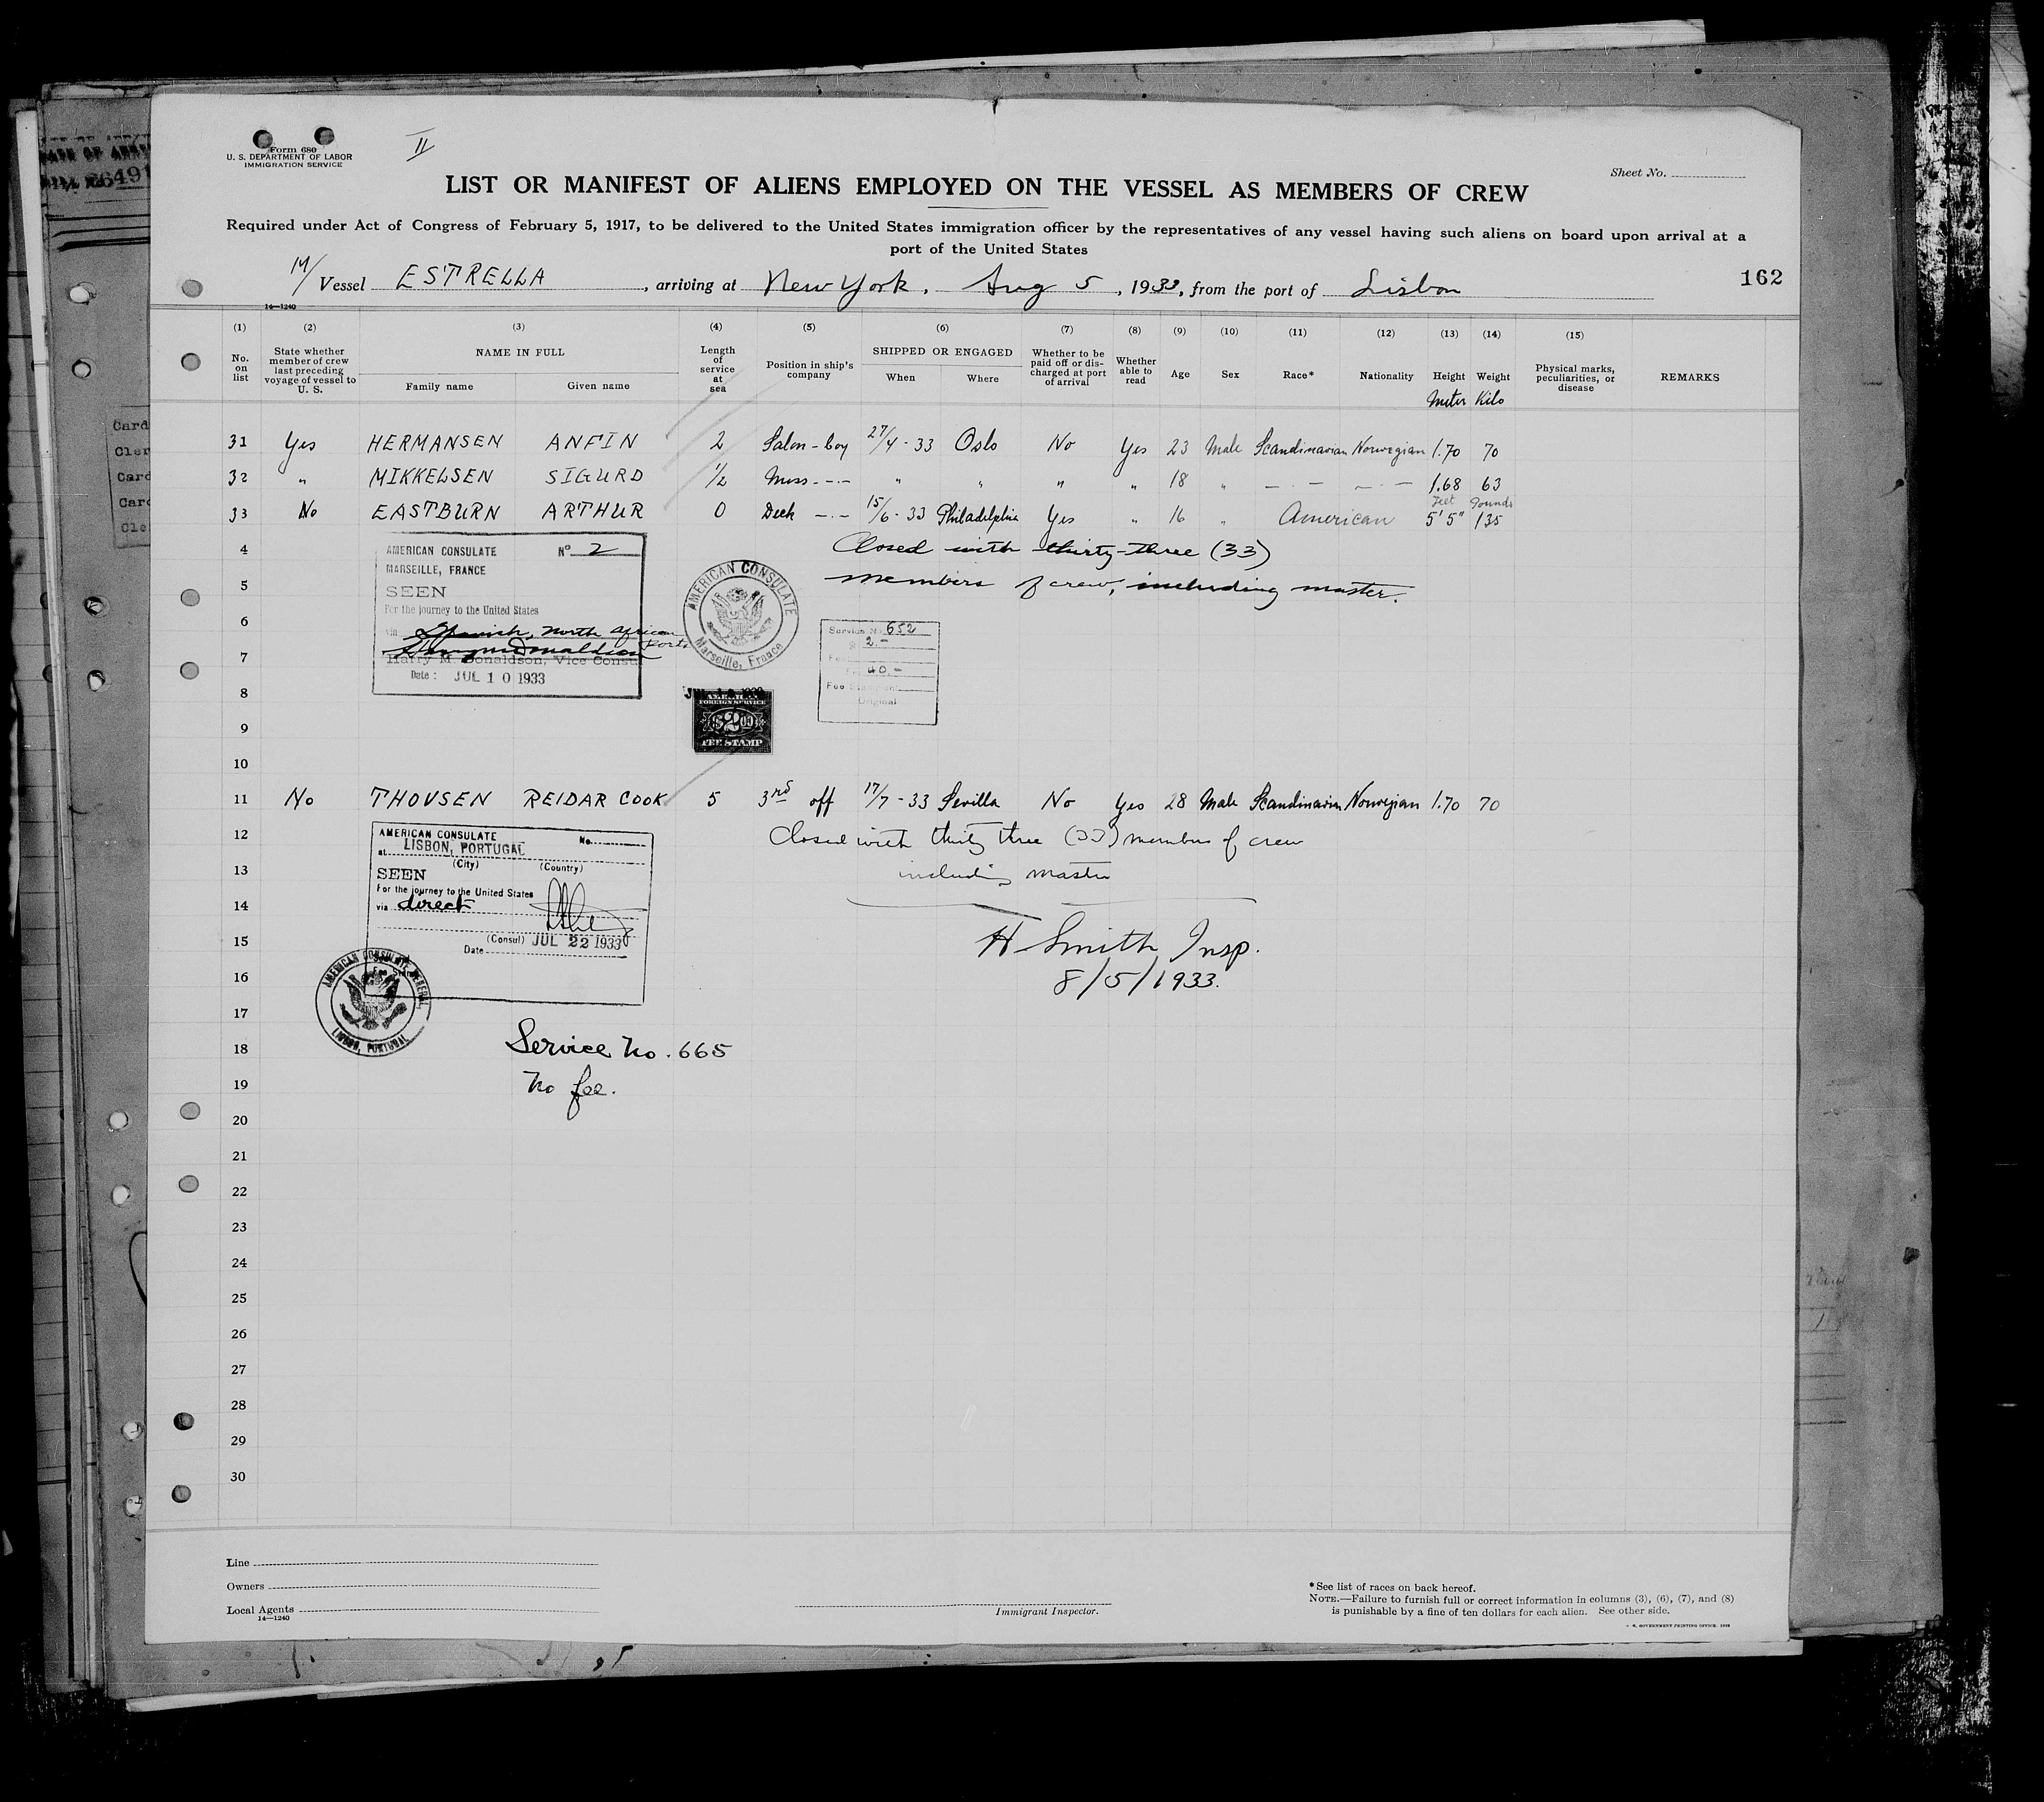 Form 680
U. S. DEPARTMENT OF LABOR
IMMIGRATION SERVICE
II
Sheet No.
LIST OR MANIFEST OF ALIENS EMPLOYED ON THE VESSEL AS MEMBERS OF CREW
Required under Act of Congress of February 5, 1917, to be delivered to the United States immigration officer by the representatives of any vessel having such aliens on board upon arrival at a
port of the United States
M/ Vessel ESTRELLA, arriving at New York, Aug 5, 1933, from the port of Lisbon
162
14—1240
(1) (2) (3) (4) (5) (6) (7) (8) (9) (10) (11) (12) (13) (14) (15)
No. on list
State whether member of crew last preceding voyage of vessel to U. S.
NAME IN FULL
Family name Given name
Length of service at sea
Position in ship's company
SHIPPED OR ENGAGED
When Where
Whether to be paid off or discharged at port of arrival
Whether able to read
Age Sex Race* Nationality Height Weight
Meter Kilo
Physical marks, peculiarities, or disease
REMARKS
31 Yes HERMANSEN ANFIN 2 Salon-boy 27/4-33 Oslo No Yes 23 Male Scandinavian Norwegian 1.70 70
32 " MIKKELSEN SIGURD 1/2 Mess -·- " " " " 18 " -·- -·- 1.68 63
Feet Pounds
33 No EASTBURN ARTHUR 0 Deck -·- 15/6-33 Philadelphia Yes " 16 " American 5'5" 135
4 Closed with thirty-three (33)
5 members of crew, including master.
AMERICAN CONSULATE No 2
MARSEILLE, FRANCE
SEEN
For the journey to the United States
via Spanish, North African Ports
Harry M. Donaldson, Vice Consul
Date: JUL 10 1933
AMERICAN CONSULATE
Marseille, France
Service No. 652
2-
40-
Fee Stamp
Original
FOREIGN SERVICE
$2.00
FEE STAMP
6
7
8
9
10
11 No THOVSEN REIDAR COOK 5 3rd off 17/7-33 Sevilla No Yes 28 Male Scandinavian Norwegian 1.70 70
12 Closed with thirty three (33) members of crew
13 including master
AMERICAN CONSULATE No.
at LISBON, PORTUGAL
(City) (Country)
SEEN
For the journey to the United States
via direct
(Consul)
Date JUL 22 1933
AMERICAN CONSULATE GENERAL
LISBON, PORTUGAL
14
15 H Smith Insp.
16 8/5/1933.
17
18 Service No. 665
19 No fee.
20
21
22
23
24
25
26
27
28
29
30
Line
Owners
Local Agents
14—1240
Immigrant Inspector.
* See list of races on back hereof.
NOTE.—Failure to furnish full or correct information in columns (3), (6), (7), and (8)
is punishable by a fine of ten dollars for each alien. See other side.